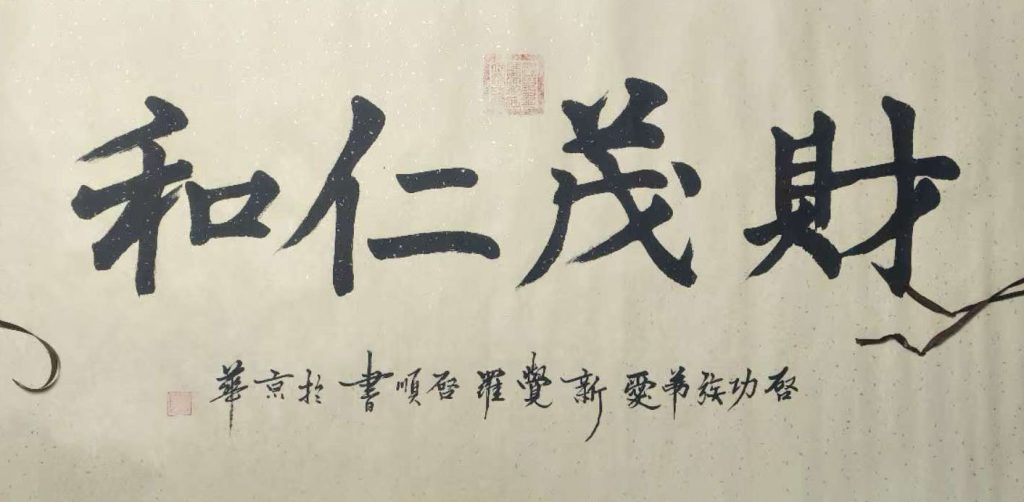 財茂仁和
啓功族弟愛新覺羅啓順書於京華